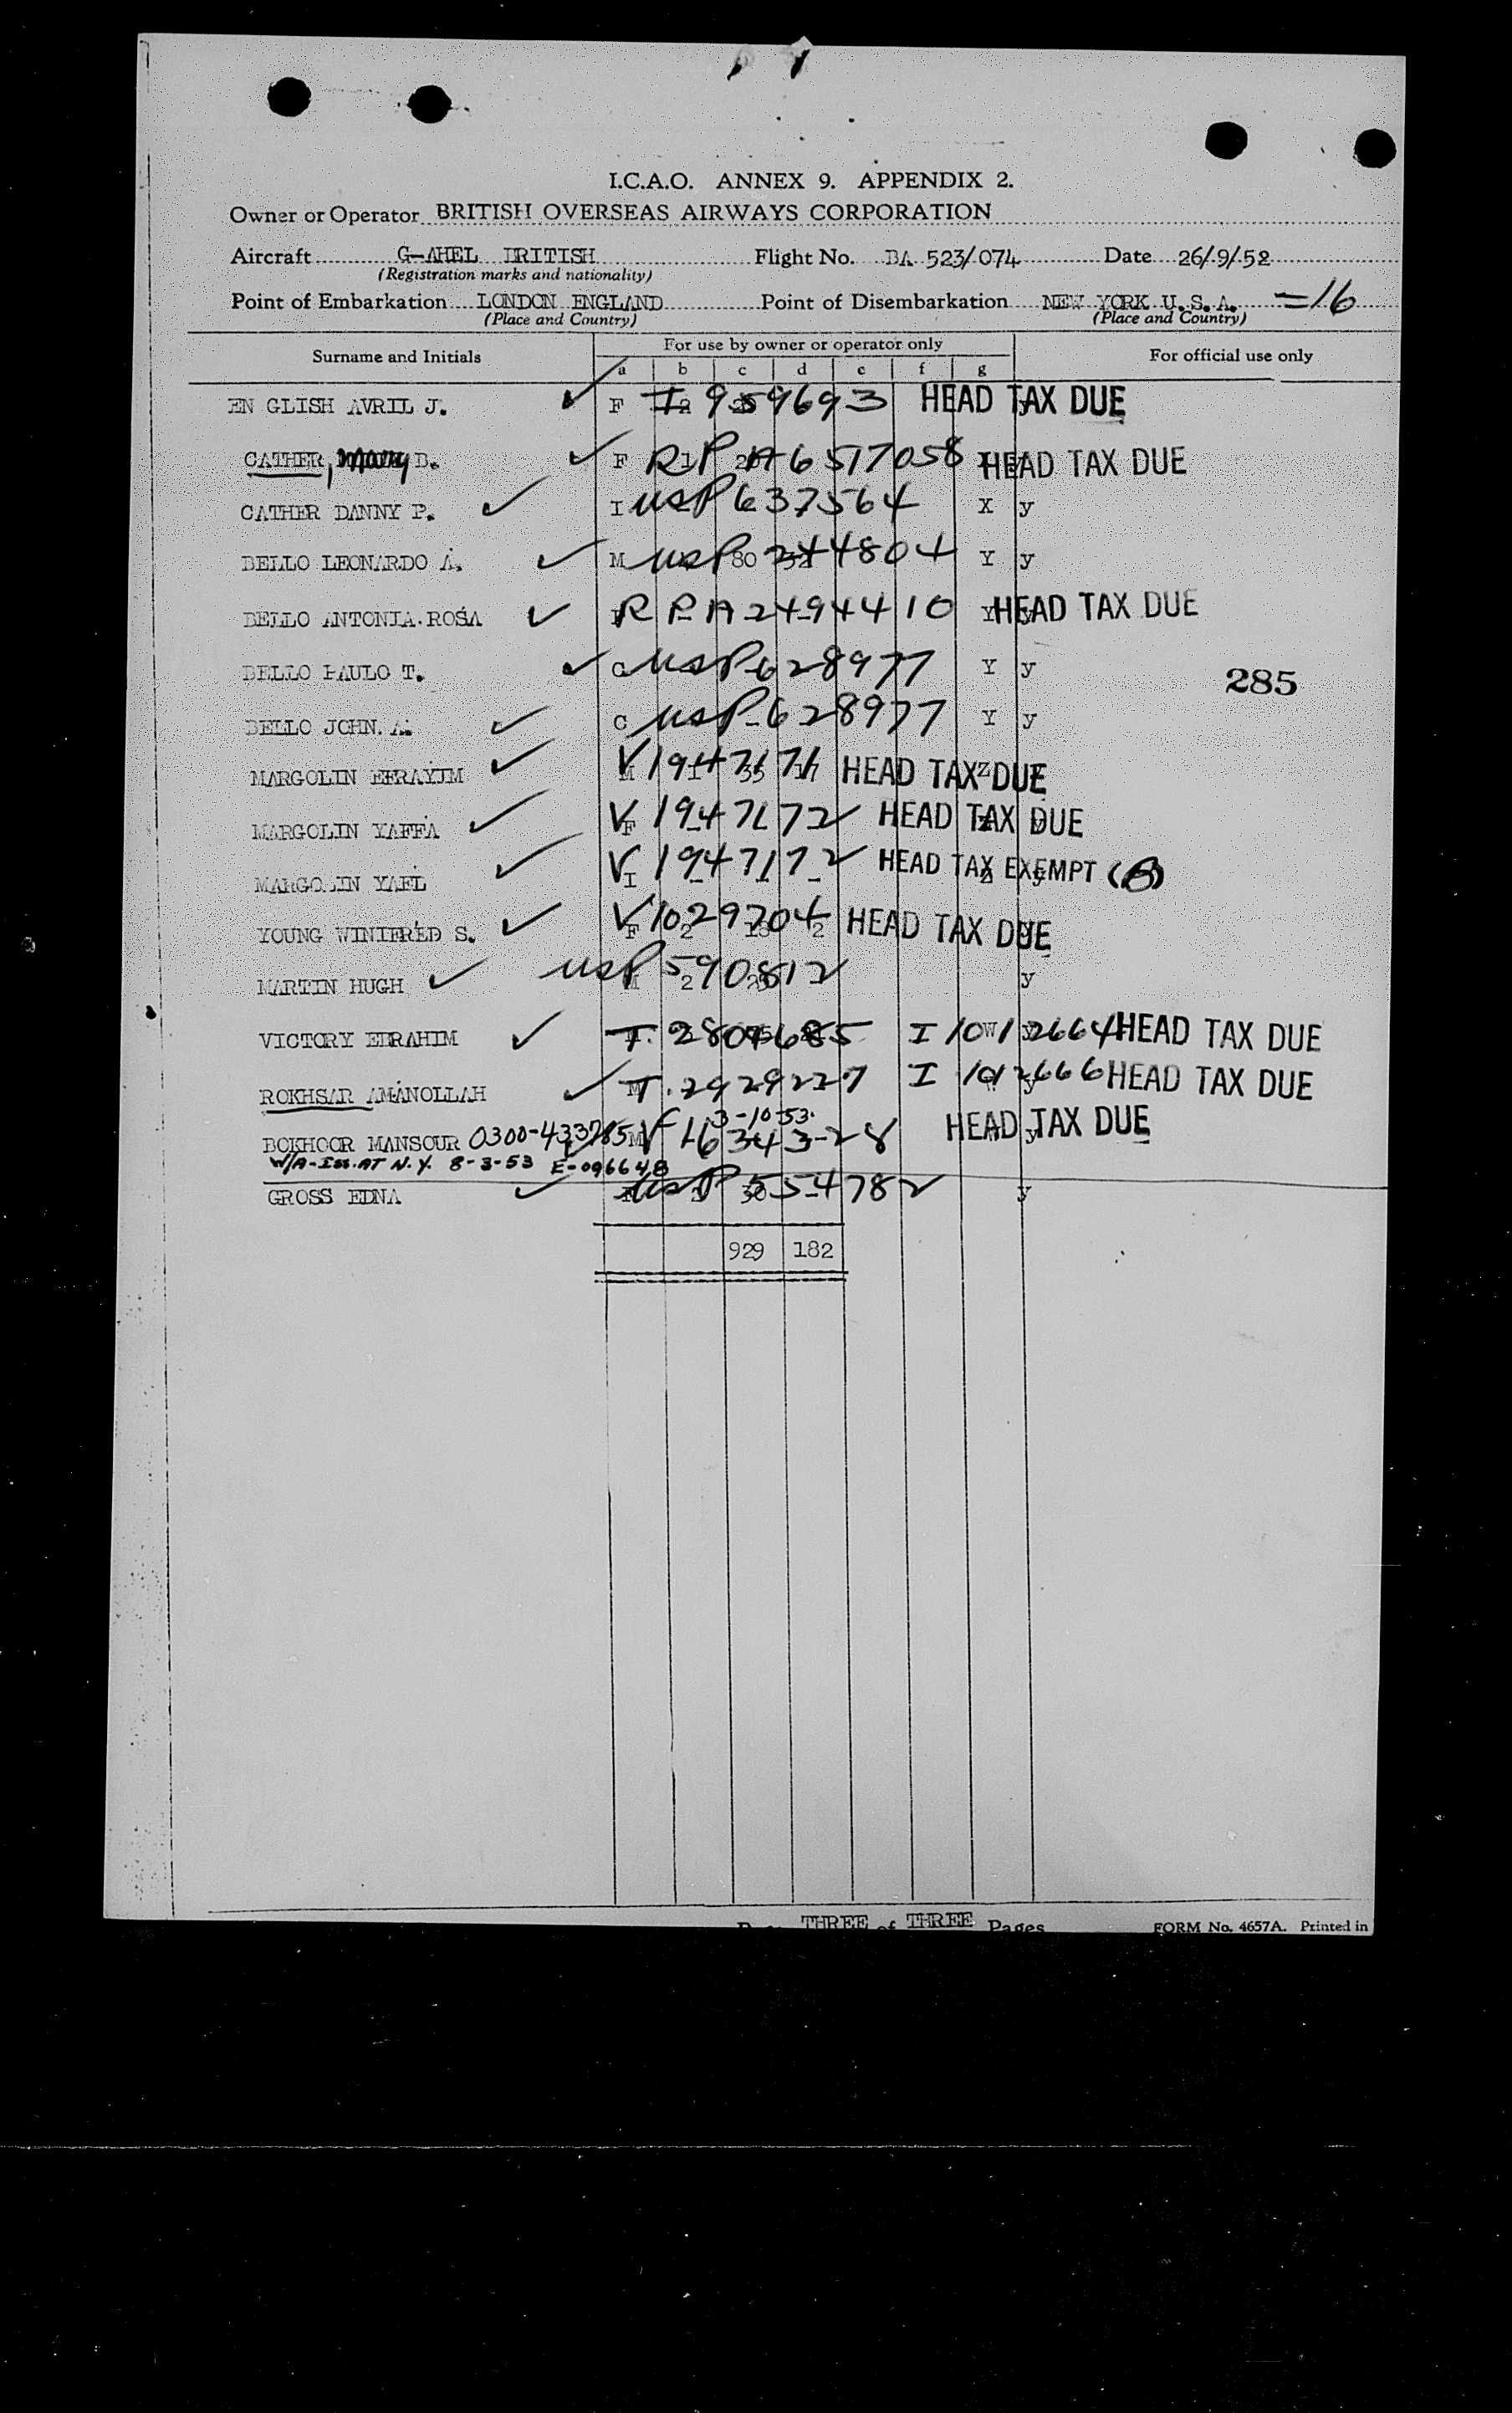 I.C.A.O. ANNEX 9. APPENDIX 2.
Owner or Operator BRITISH OVERSEAS AIRWAYS CORPORATION
Aircraft G-AHEL BRITISH Flight No. BA 523/074 Date 26/9/52
(Registration marks and nationality)
Point of Embarkation LONDON ENGLAND Point of Disembarkation NEW YORK U.S.A. =16
(Place and Country) (Place and Country)
Surname and Initials For use by owner or operator only For official use only
a b c d e f g
EN GLISH AVRIL J. F I 959693 HEAD TAX DUE
CATHER, Mary D. F RP A6517058 HEAD TAX DUE
CATHER DANNY P. I USP 637564 X y
BELLO LEONARDO A. M USP 244804 Y y
BELLO ANTONIA.ROSA RP A2494410 Y HEAD TAX DUE
BELLO PAULO T. C USP 628977 Y y
285
BELLO JOHN. A. C USP 628977 Y y
MARGOLIN EFRAYIM M V1947171 HEAD TAX DUE
MARGOLIN YAFFA F V1947172 HEAD TAX DUE
MARGOLIN YAEL I V1947172 HEAD TAX EXEMPT (B)
YOUNG WINIFRED S. F V1029704 HEAD TAX DUE
MARTIN HUGH M USP 590812 y
VICTORY EBRAHIM T. 2804685 I 1012664 HEAD TAX DUE
ROKHSAR AMANOLLAH M T. 2929227 I 1012666 HEAD TAX DUE
3-10-53.
BOKHOOR MANSOUR 0300-433785 M V 1634328 HEAD TAX DUE
W/A-Iss. AT N.Y. 8-3-53 E-096648
GROSS EDNA USP 554782 y
929 182
THREE of THREE Pages FORM No. 4657A. Printed in